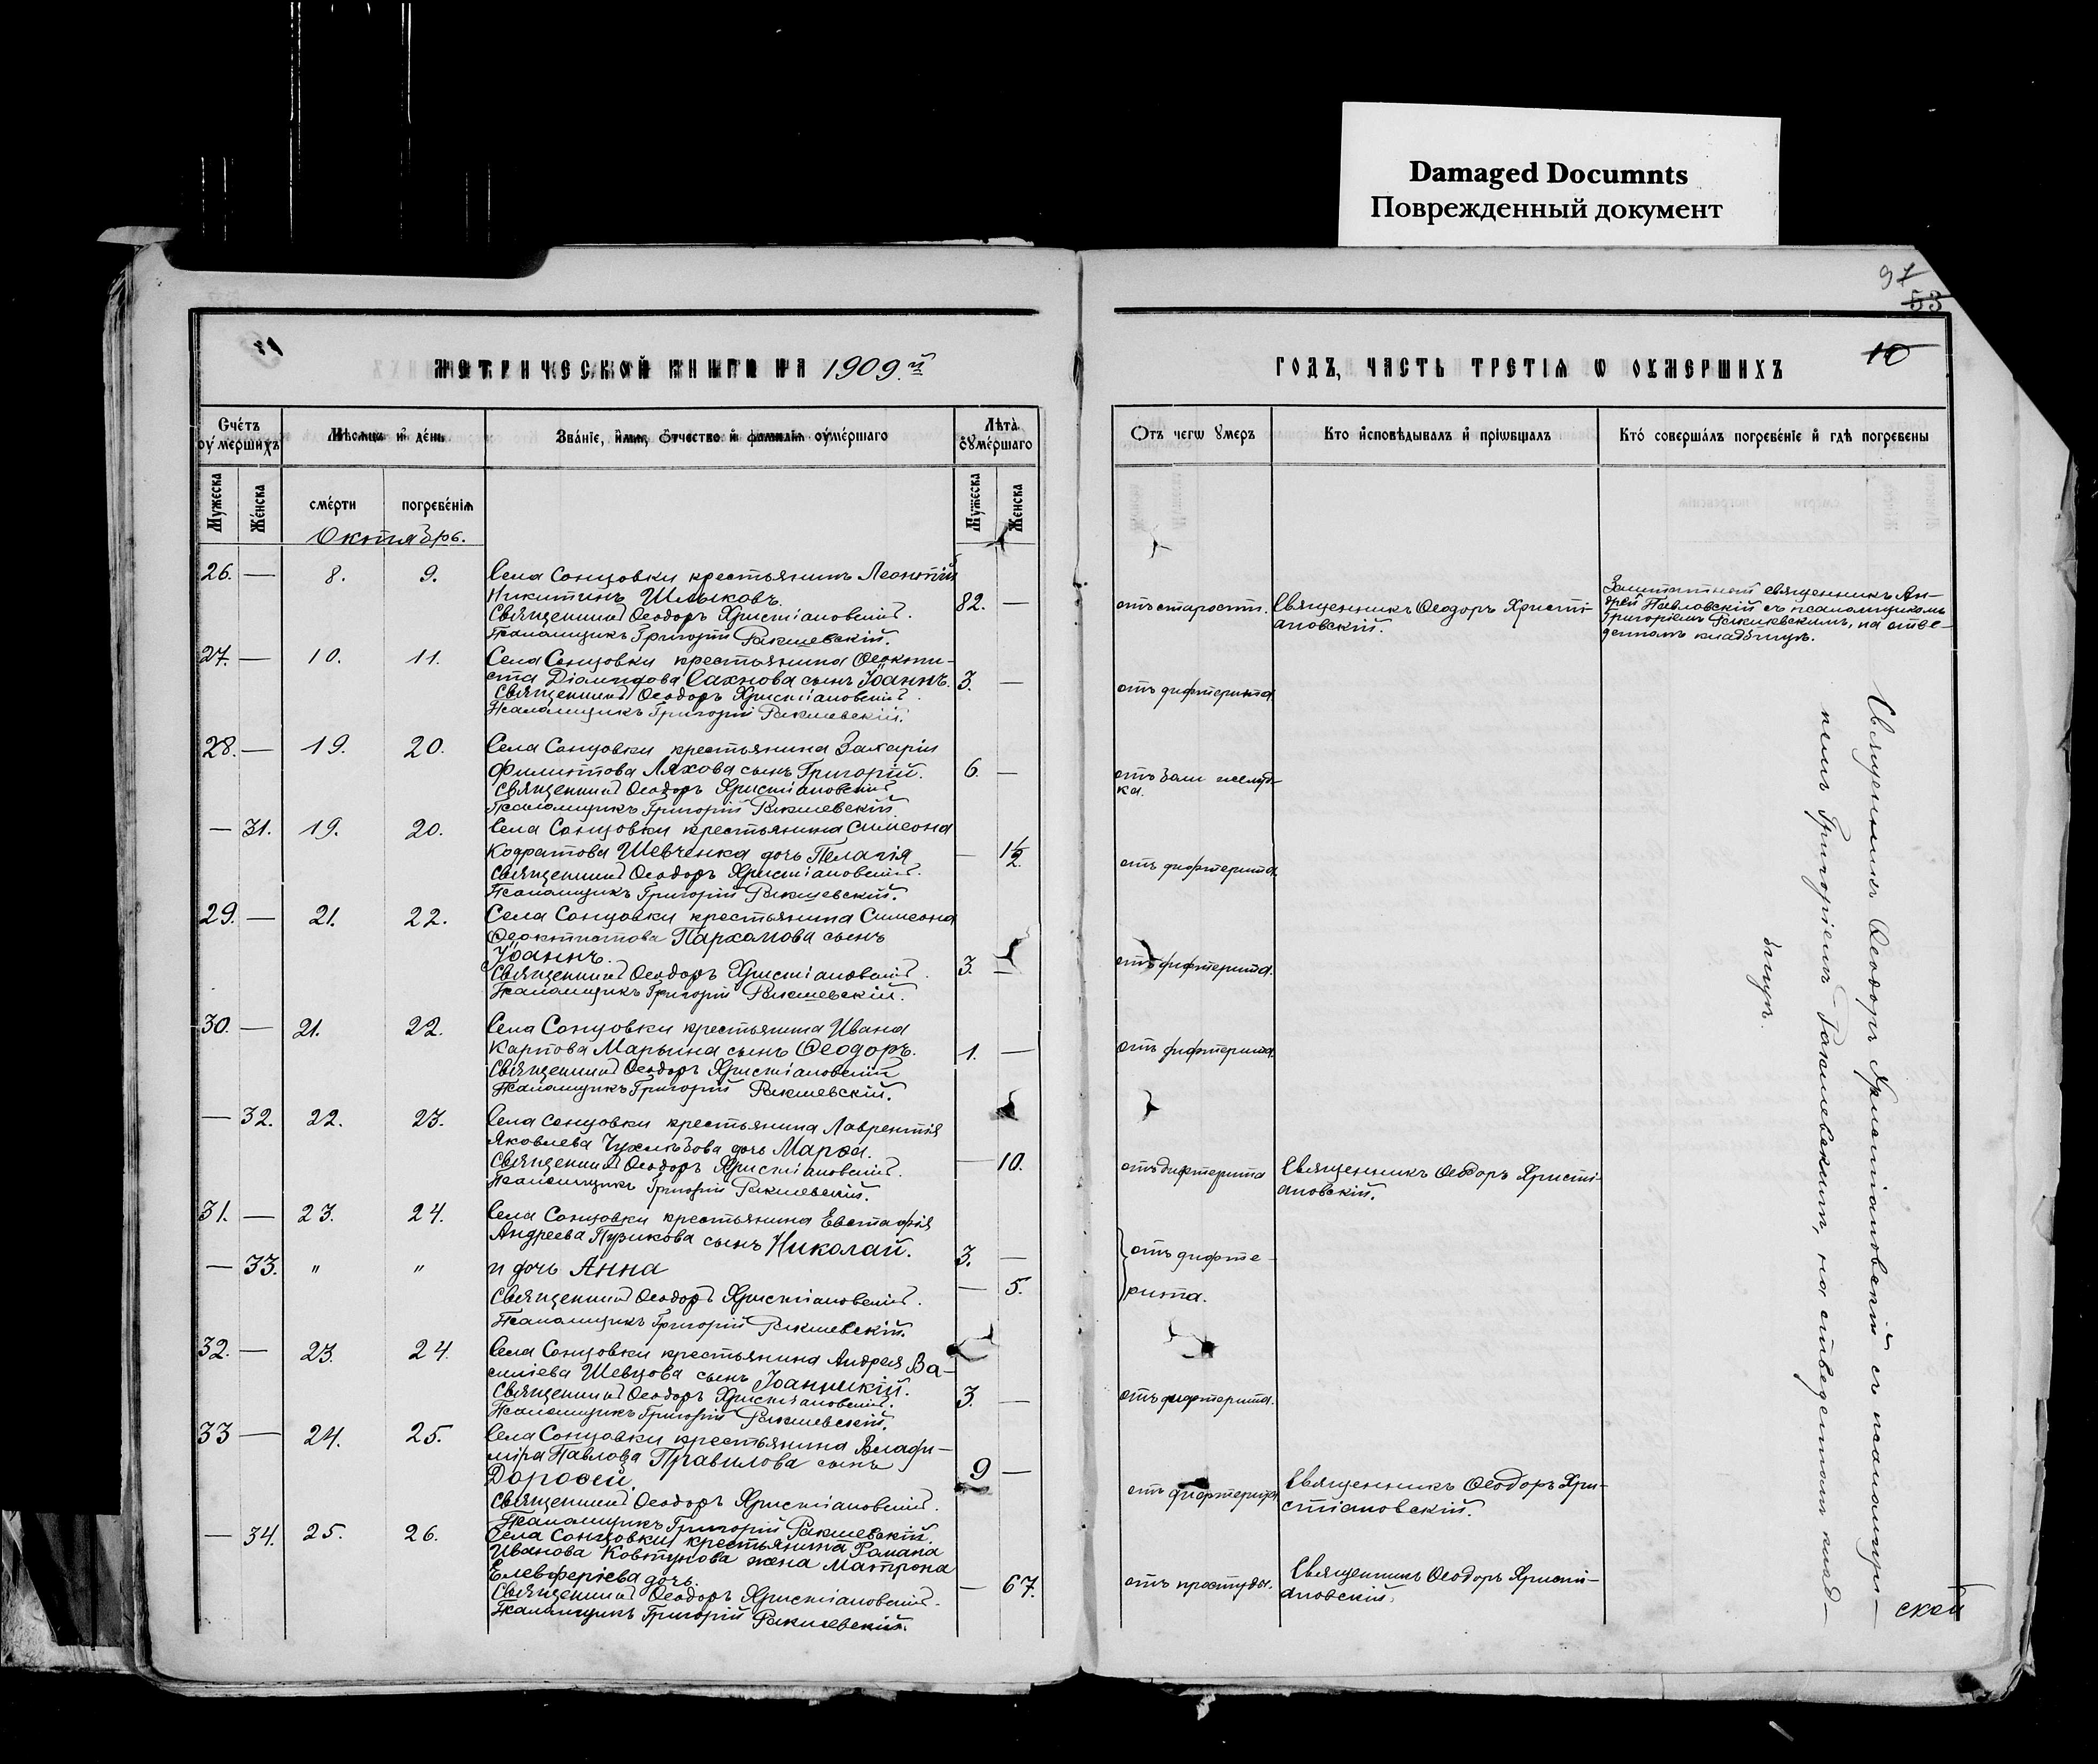 Damaged Documnts
Поврежденный документ
97
53
10
МЕТРИЧЕСКОЙ КНИГИ НА 1909.й
ГОДЪ, ЧАСТЬ ТРЕТІѦ Ѡ ОУМЕРШИХЪ
Счетъ оумершихъ
Мѣсяцъ и день
Званіе, имя, отчество и фамилія оумершаго
Лѣта оумершаго
Мужеска
Женска
смерти
погребенія
Мужеска
Женска
Отъ чегѡ умеръ
Кто исповѣдывалъ и пріѡбщалъ
Кто совершалъ погребеніе и гдѣ погребены
Октябрь.
26. — 8. 9. Села Сонцовки крестьянинъ Леонтій
Никитинъ Шлыковъ. 82. —
Священникъ Ѳеодоръ Христіановскій.
Псаломщикъ Григорій Ракшевскій.
отъ старости. Священникъ Ѳеодоръ Христі-
ановскій.
Заштатный священникъ Ан-
дрей Павловскій съ псаломщикомъ
Григоріемъ Ракшевскимъ, на отве-
денномъ кладбищѣ.
27. — 10. 11. Села Сонцовки крестьянина Ѳеокти-
ста Діомидова Сахнова сынъ Іоаннъ. 3. —
Священникъ Ѳеодоръ Христіановскій.
Псаломщикъ Григорій Ракшевскій.
отъ дифтерита
28. — 19. 20. Села Сонцовки крестьянина Захарія
Филиппова Ляхова сынъ Григорій. 6. —
Священникъ Ѳеодоръ Христіановскій
Псаломщикъ Григорій Ракшевскій
отъ боли желуд-
ка.
— 31. 19. 20. Села Сонцовки крестьянина Симеона
Кодратова Шевченка дочь Пелагія — 1½
Священникъ Ѳеодоръ Христіановскій.
Псаломщикъ Григорій Ракшевскій.
отъ дифтерита.
29. — 21. 22. Села Сонцовки крестьянина Симеона
Ѳеоктистова Пархомова сынъ
Іоаннъ.
Священникъ Ѳеодоръ Христіановскій. 3. —
Псаломщикъ Григорій Ракшевскій.
отъ дифтерита.
30. — 21. 22. Села Сонцовки крестьянина Ивана
Карпова Марьина сынъ Ѳеодоръ. 1. —
Священникъ Ѳеодоръ Христіановскій
Псаломщикъ Григорій Ракшевскій.
отъ дифтерита.
— 32. 22. 23. Села Сонцовки крестьянина Лаврентія
Яковлева дочь Марѳа.
Священникъ Ѳеодоръ Христіановскій. — 10.
Псаломщикъ Григорій Ракшевскій.
отъ дифтерита Священникъ Ѳеодоръ Христі-
ановскій.
31. — 23. 24. Села Сонцовки крестьянина Евстафія
Андреева Пузикова сынъ Николай. 3. —
— 33. " " и дочь Анна — 5.
Священникъ Ѳеодоръ Христіановскій.
Псаломщикъ Григорій Ракшевскій.
отъ дифте-
рита.
32. — 23. 24. Села Сонцовки крестьянина Андрея Ва-
силіева Шевцова сынъ Іоанникій.
Священникъ Ѳеодоръ Христіановскій. 3. —
Псаломщикъ Григорій Ракшевскій.
отъ дифтерита.
33 — 24. 25. Села Сонцовки крестьянина Влади-
міра Павлова Правилова сынъ
Дороѳей. 9 —
Священникъ Ѳеодоръ Христіановскій.
Псаломщикъ Григорій Ракшевскій.
отъ дифтерита Священникъ Ѳеодоръ Хри-
стіановскій.
— 34. 25. 26. Села Сонцовки крестьянина Романа
Иванова Ковтунова жена Матрона
Елевферіева дочь. — 67.
Священникъ Ѳеодоръ Христіановскій.
Псаломщикъ Григорій Ракшевскій.
отъ простуды. Священникъ Ѳеодоръ Христі-
ановскій.
Священникъ Ѳеодоръ Христіановскій съ псаломщи-
комъ Григоріемъ Ракшевскимъ, на отведенномъ клад-
бищѣ.
ской